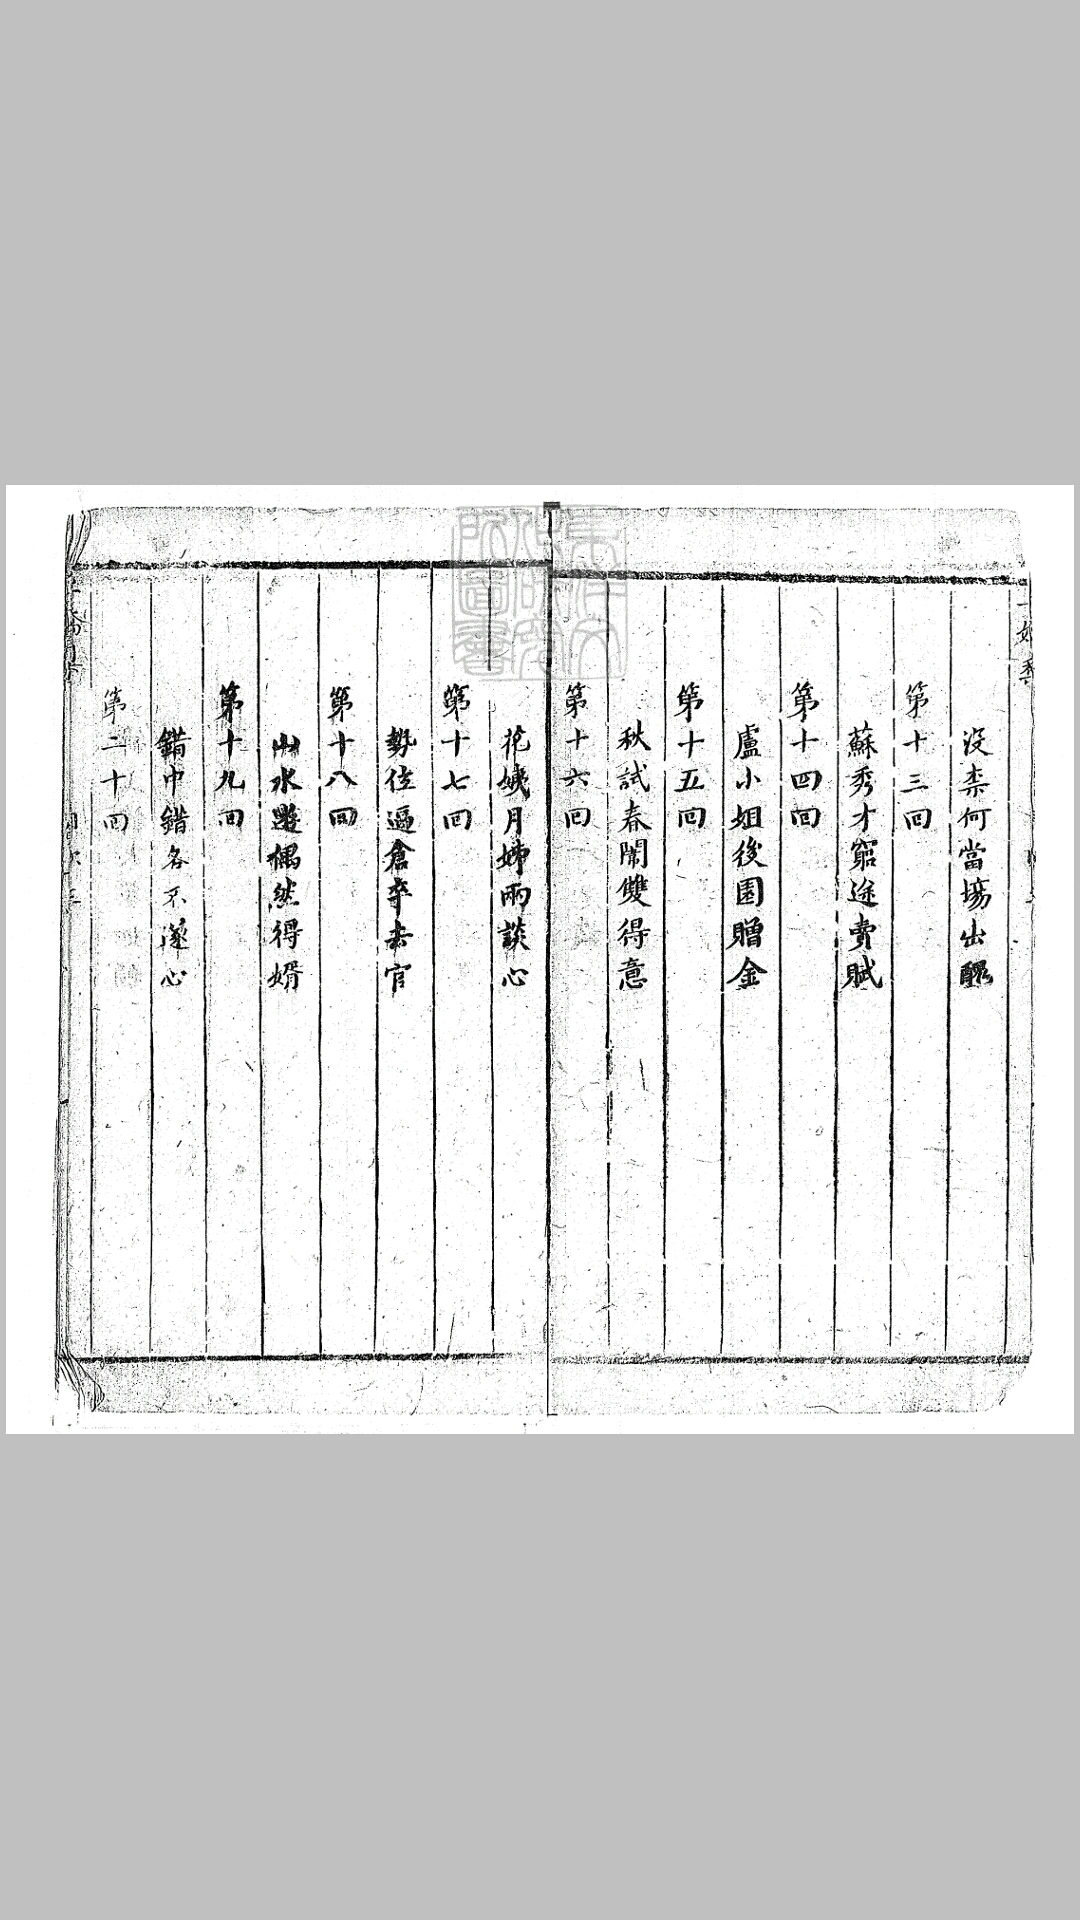 沒柰何當場出醜
第十三回
蘇秀才窮途賣賦
第十四回
盧小姐後園贈金
第十五回
秋試春闈雙得意
第十六回
花姨月姊兩談心
第十七回
勢位逼倉卒去官
第十八回
山水遊偶然得婿
第十九回
錯中錯各不遂心
第二十回